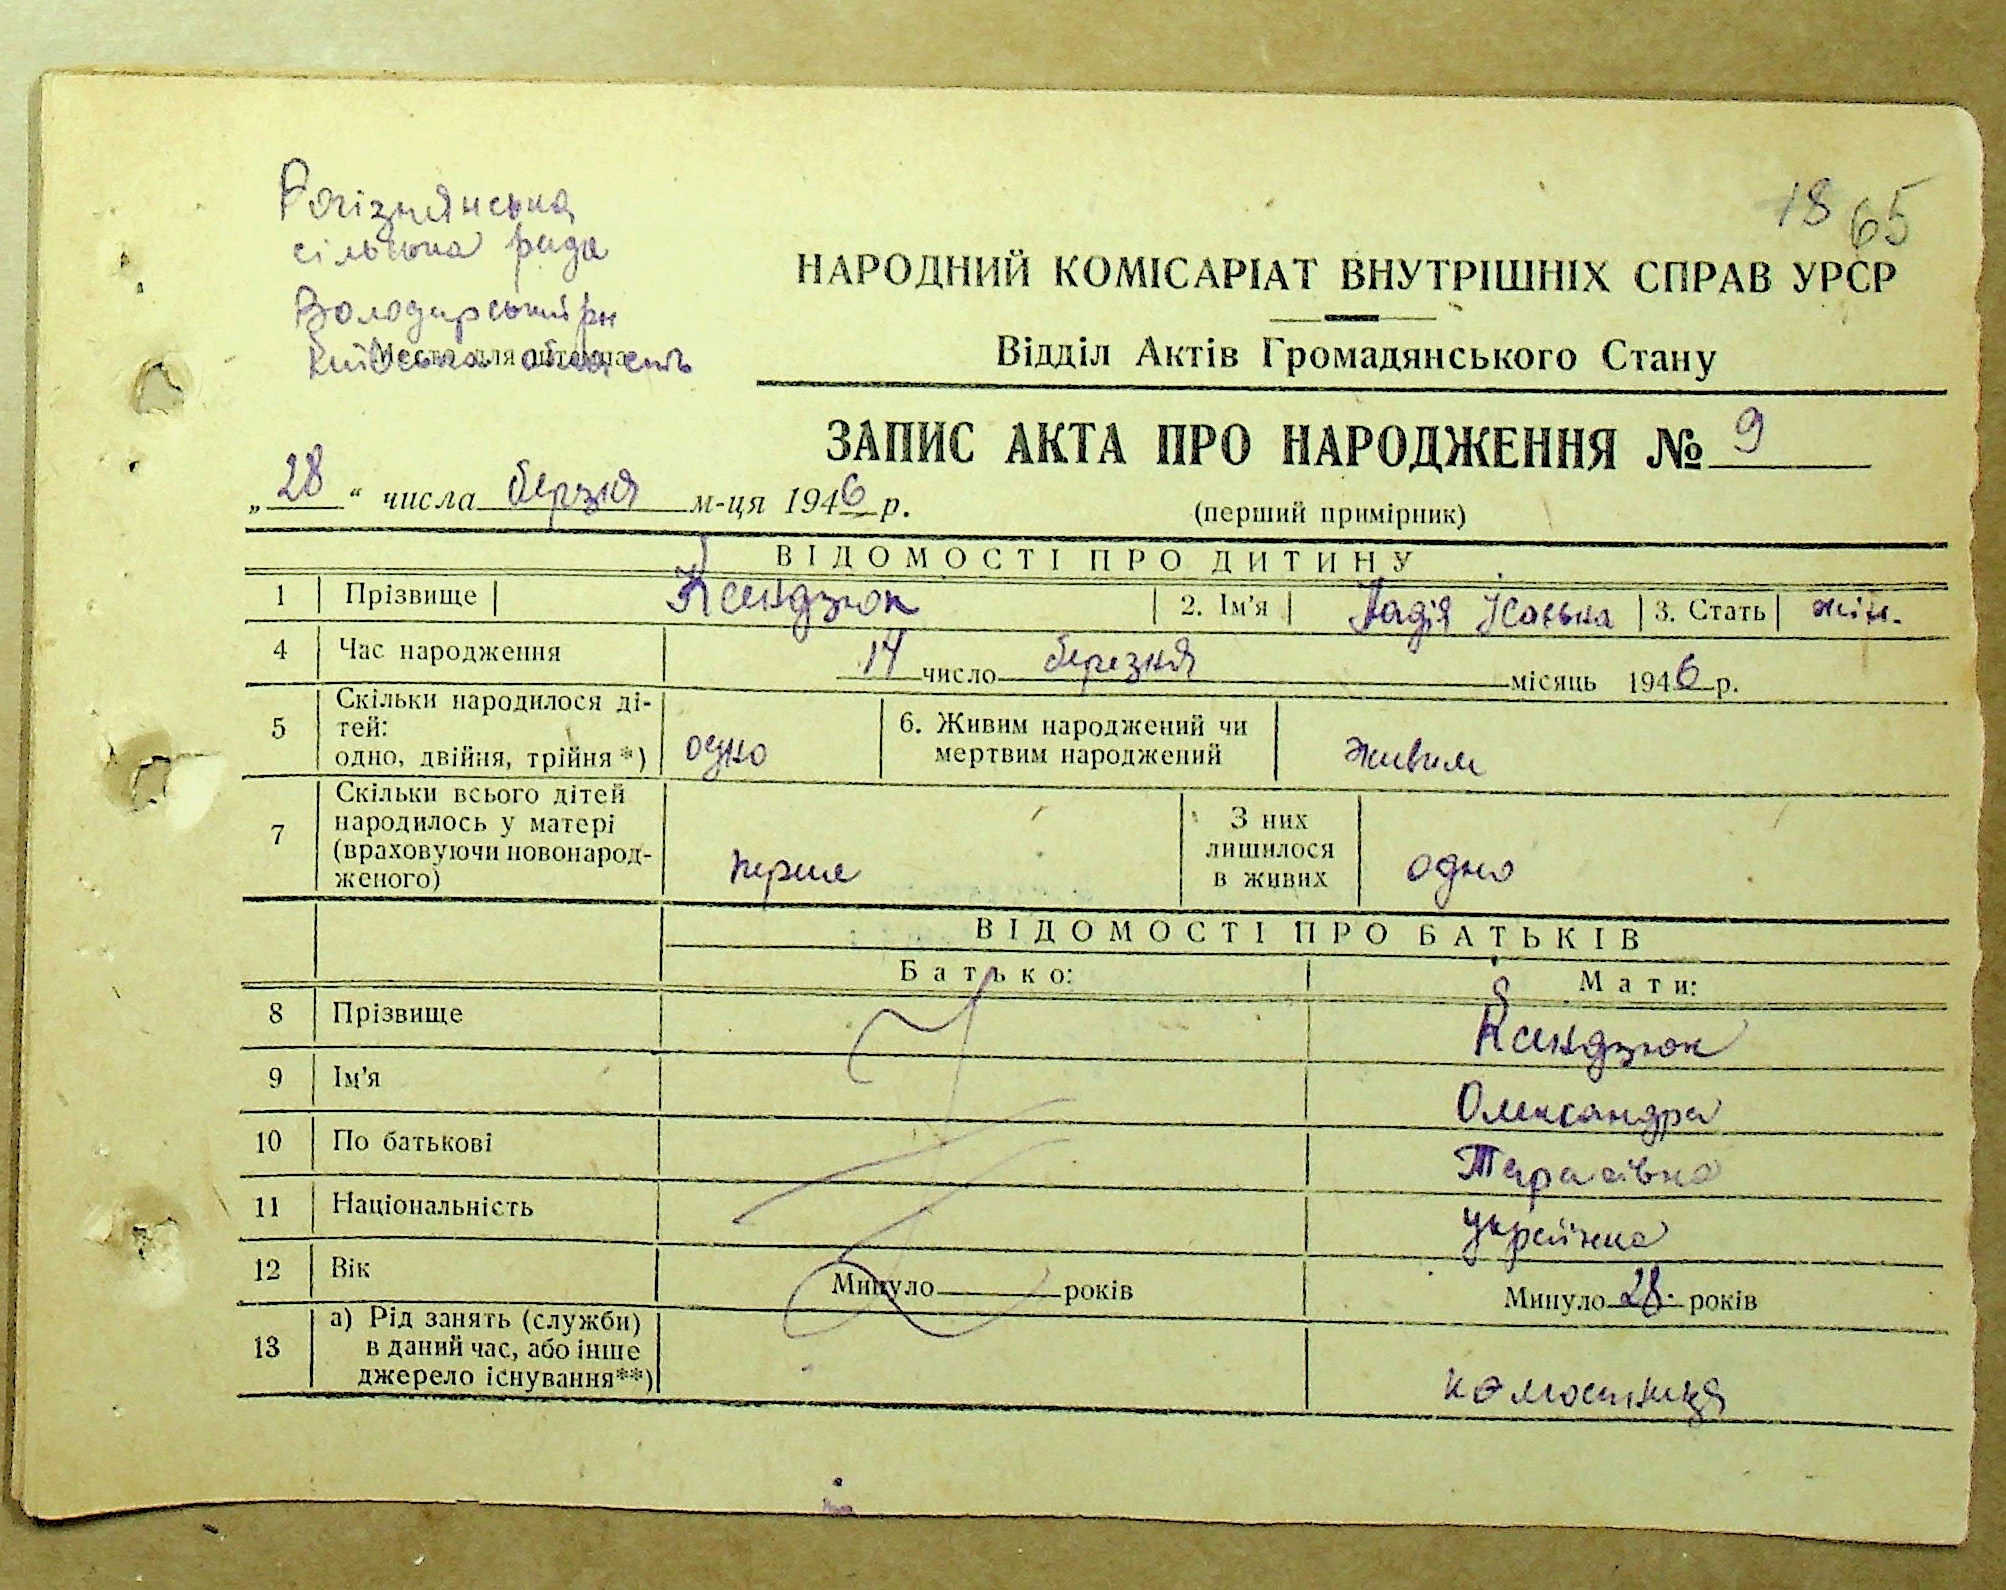 Рогізнянська
сільська рада
Володарський рн
Київська область
Місце для штампа
18 65
НАРОДНИЙ КОМІСАРІАТ ВНУТРІШНІХ СПРАВ УРСР
Відділ Актів Громадянського Стану
ЗАПИС АКТА ПРО НАРОДЖЕННЯ № 9
„28“ числа березня м-ця 1946 р.
(перший примірник)
ВІДОМОСТІ ПРО ДИТИНУ
1 Прізвище Ксендзюк 2. Ім'я Надія 3. Стать жін.
4 Час народження 14 число березня місяць 1946 р.
5 Скільки народилося ді-
тей:
одно, двійня, трійня *) одно 6. Живим народжений чи
мертвим народжений живим
7 Скільки всього дітей
народилось у матері
(враховуючи новонарод-
женого) перше З них
лишилося
в живих одно
ВІДОМОСТІ ПРО БАТЬКІВ
Батько: Мати:
8 Прізвище Ксендзюк
9 Ім'я Олександра
10 По батькові Тарасівна
11 Національність українка
12 Вік Минуло років Минуло 28 років
13 а) Рід занять (служби)
в даний час, або інше
джерело існування**)